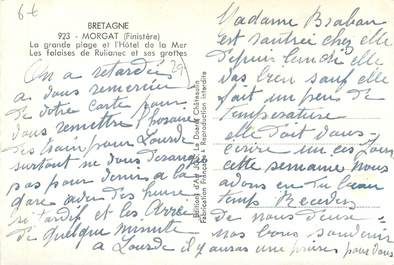 6 f
BRETAGNE
923 - MORGAT (Finistère)
La grande plage et l'Hôtel de la Mer
Les falaises de Rulianec et ses grottes
29
On a retardés
a vous remercier
de votre carte pour
vous remettre l'horaire
des train pour Lourde
surtout ne vous derangé
pas pour venir a la
gare avec des heure
si tardif et les Arre
de quelque minute
a Lourde il y auras une prière pour vous
Editions d'Art Jos Le Doaré, Châteaulin
Fabrication Française - Reproduction interdite
Madame Braban
est rentrée chez elle
depuis lundi elle
vas bien sauf elle
fait un peu de
temperature
elle doit vous
ecrire
cette semaine nous
avons eu du beau
temp Recevez
de nous deux
nos bons souvenir